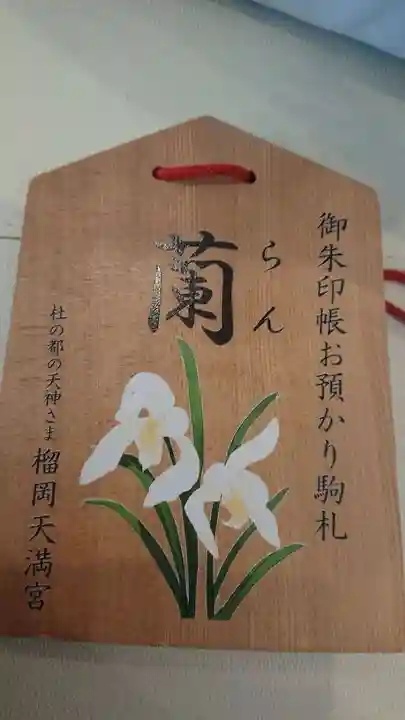 御朱印帳お預かり駒札
らん
蘭
杜の都の天神さま
榴岡天満宮